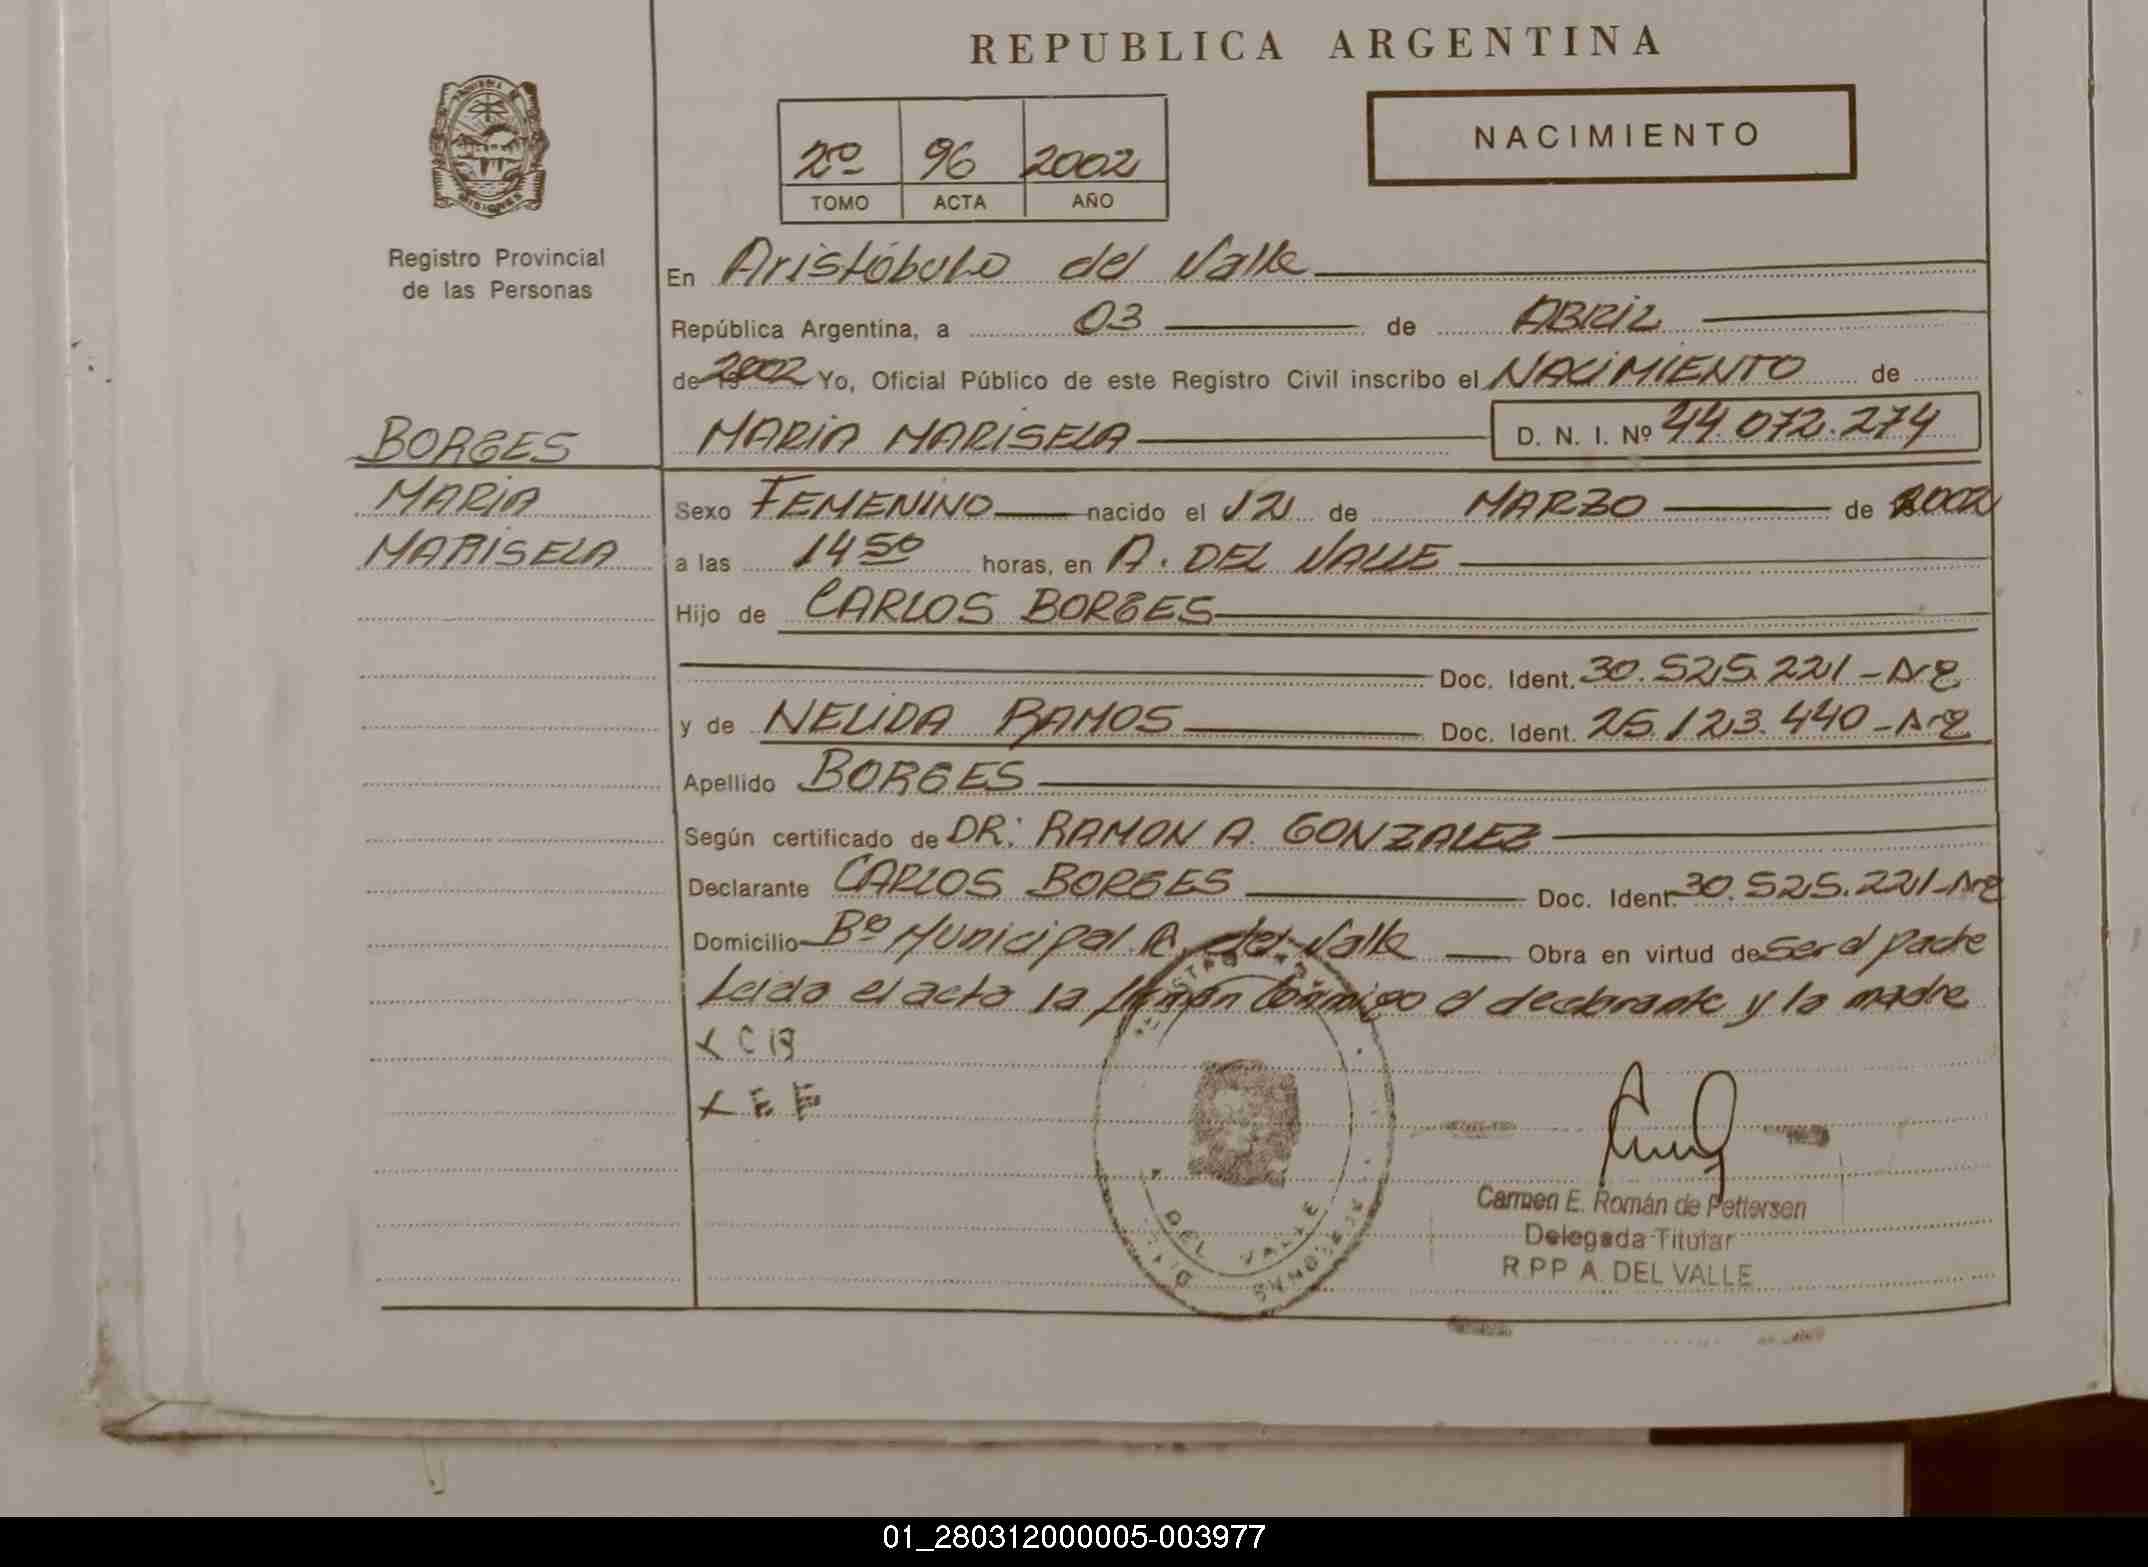 REPUBLICA ARGENTINA
NACIMIENTO
2º 96 2002
TOMO ACTA AÑO
MISIONES
Registro Provincial
de las Personas
En Aristóbulo del Valle
República Argentina, a 03 de ABRIL
de 2002 Yo, Oficial Público de este Registro Civil inscribo el NACIMIENTO de
BORGES MARIA MARISELA D. N. I. Nº 44.072.274
MARIA Sexo FEMENINO nacido el 12 de MARZO de 2002
MARISELA a las 14 50 horas, en A. DEL VALLE
Hijo de CARLOS BORGES
Doc. Ident. 30.525.221-Arg
y de NELIDA RAMOS Doc. Ident. 25.123.440-Arg
Apellido BORGES
Según certificado de DR: RAMON A. GONZALEZ
Declarante CARLOS BORGES Doc. Ident. 30.525.221-Arg
Domicilio Bº Municipal A. del Valle Obra en virtud de ser el padre
Leida el acta la firman conmigo el declarante y la madre
X C B
X E E
DEL VALLE
Carmen E. Román de Pettersen
Delegada Titular
R.P.P A. DEL VALLE
01_280312000005-003977